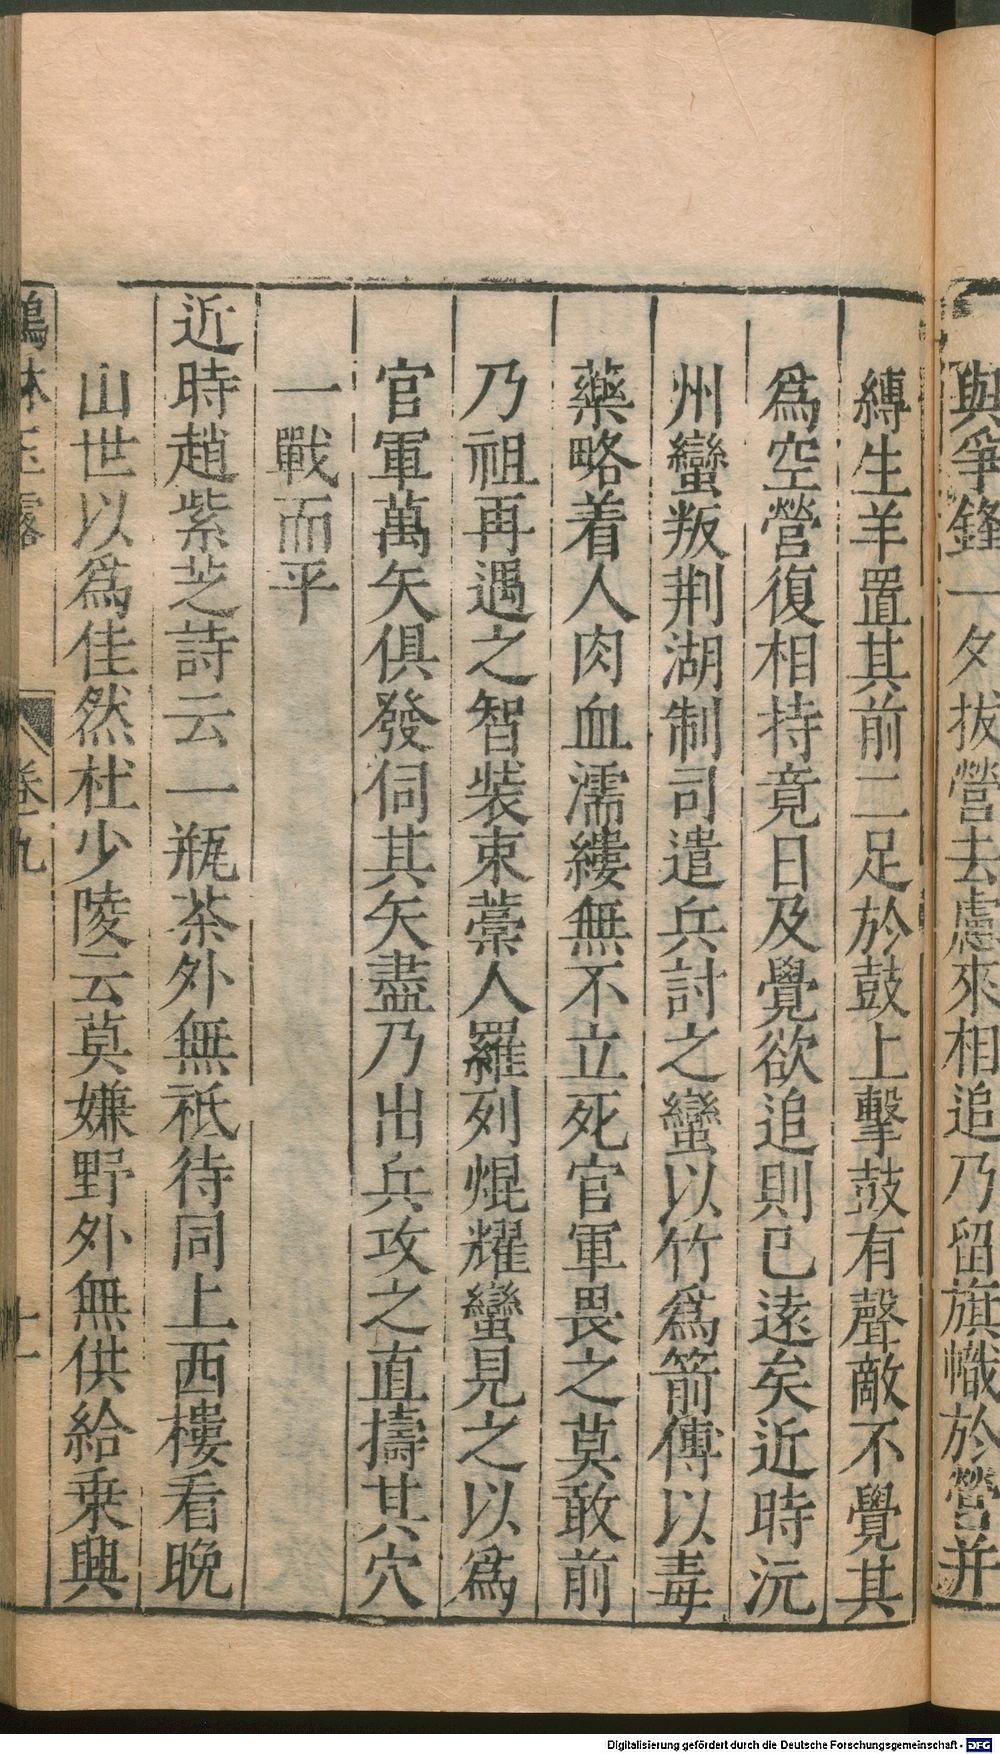 與爭鋒一夕拔營去慮來相追乃留旗幟於營并
縳生羊置其前二足於鼓上擊鼓有聲敵不覺其
爲空營復相持竟日及覺欲追則已遠矣近時沅
州蠻叛荆湖制司遣兵討之蠻以竹爲箭傅以毒
藥略着人肉血濡縷無不立死官軍畏之莫敢前
乃祖再遇之智裝束藁人羅列焜耀蠻見之以爲
官軍萬矢俱發伺其矢盡乃出兵攻之直擣其穴
一戰而平
近時趙紫芝詩云一瓶茶外無祇待同上西樓看晚
山世以爲佳然杜少陵云莫嫌野外無供給乗興
鶴林玉露 卷九 十一
Digitalisierung gefördert durch die Deutsche Forschungsgemeinschaft - DFG